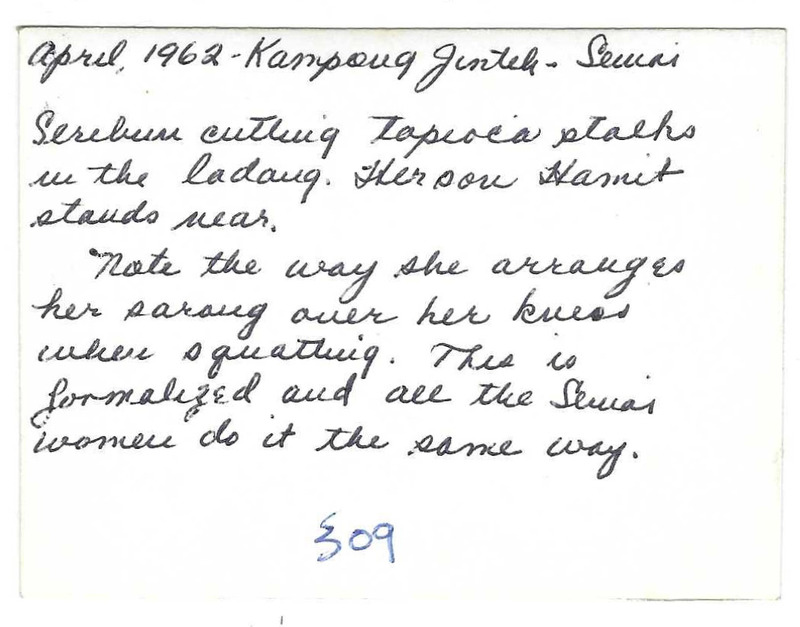 April, 1962 - Kampong Jinteh - Semai
Seribun cutting tapioca stalks
in the ladang. Her son Hamit
stands near.
Note the way she arranges
her sarong over her knees
when squatting. This is
formalized and all the Semai
women do it the same way.
309